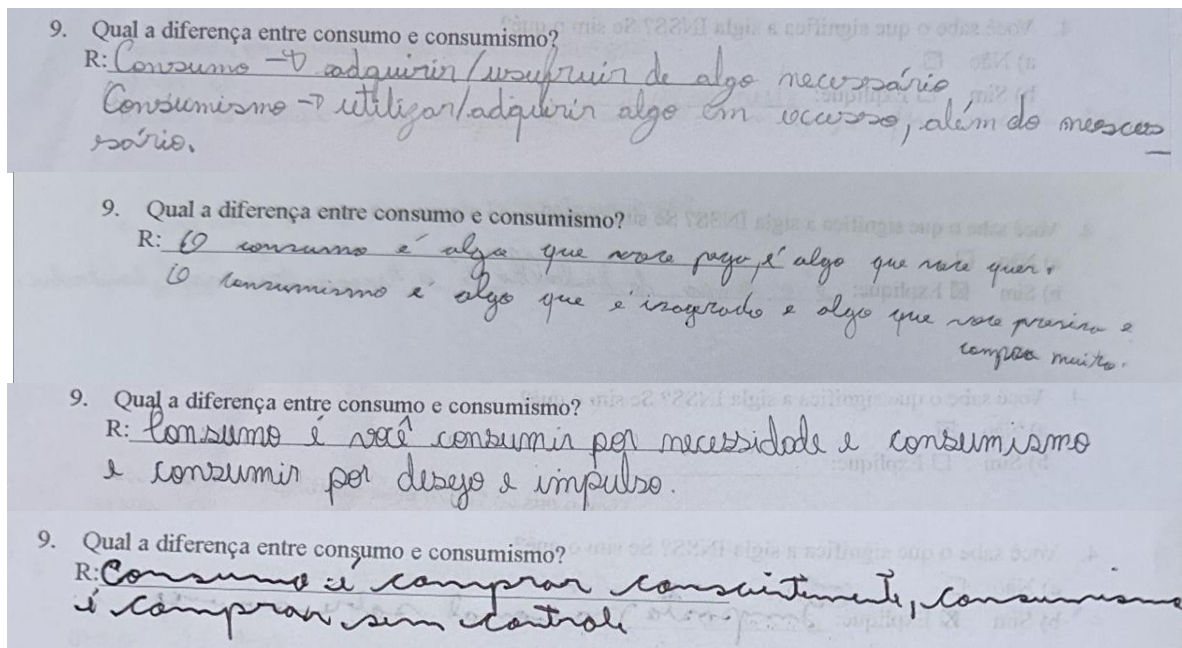 9. Qual a diferença entre consumo e consumismo?
R: Consumo → adquirir/usufruir de algo necessário
Consumismo → utilizar/adquirir algo em excesso, além do necces
sário.
9. Qual a diferença entre consumo e consumismo?
R: O consumo e' algo que voce paga, e' algo que voce quer.
O consumismo e' algo que e' exagerado e algo que voce precisa e
compra muito.
9. Qual a diferença entre consumo e consumismo?
R: Consumo é você consumir por necessidade e consumismo
e consumir por desejo e impulso.
9. Qual a diferença entre consumo e consumismo?
R: Consumo é comprar conscientimente, consumismo
é comprar sem controle